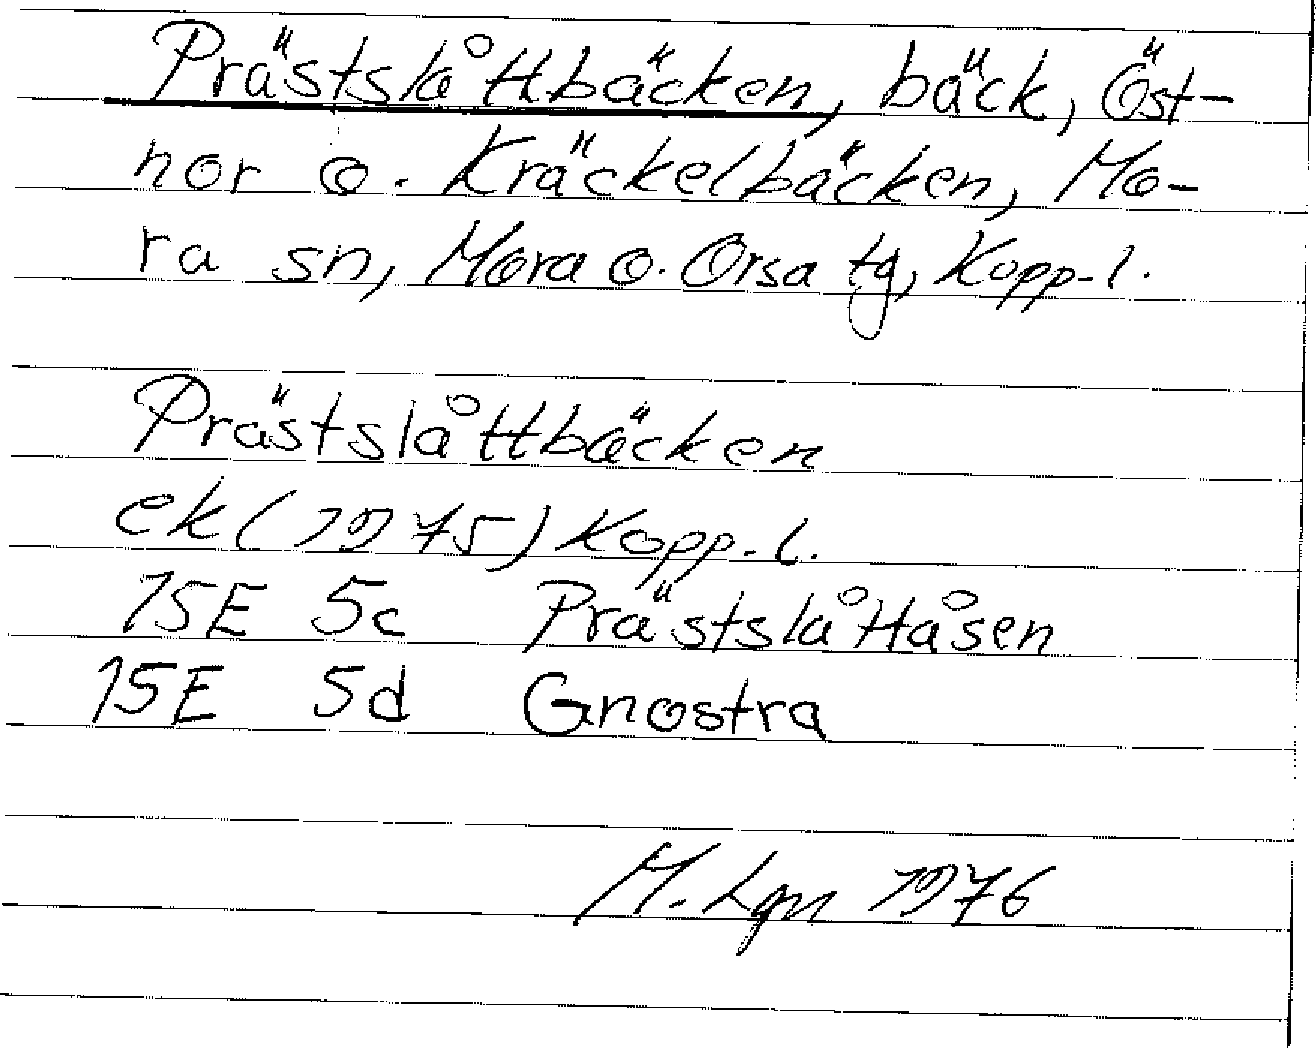 Prästslåttbäcken, bäck, Öst-
nor o. Kräckelbäcken, Mo-
ra sn, Mora o. Orsa tg, Kopp. l.
Prästslåttbäcken
ek (1975) Kopp. l.
15E 5c Prästslåttåsen
15E 5d Gnostra
M. Lgn 1976